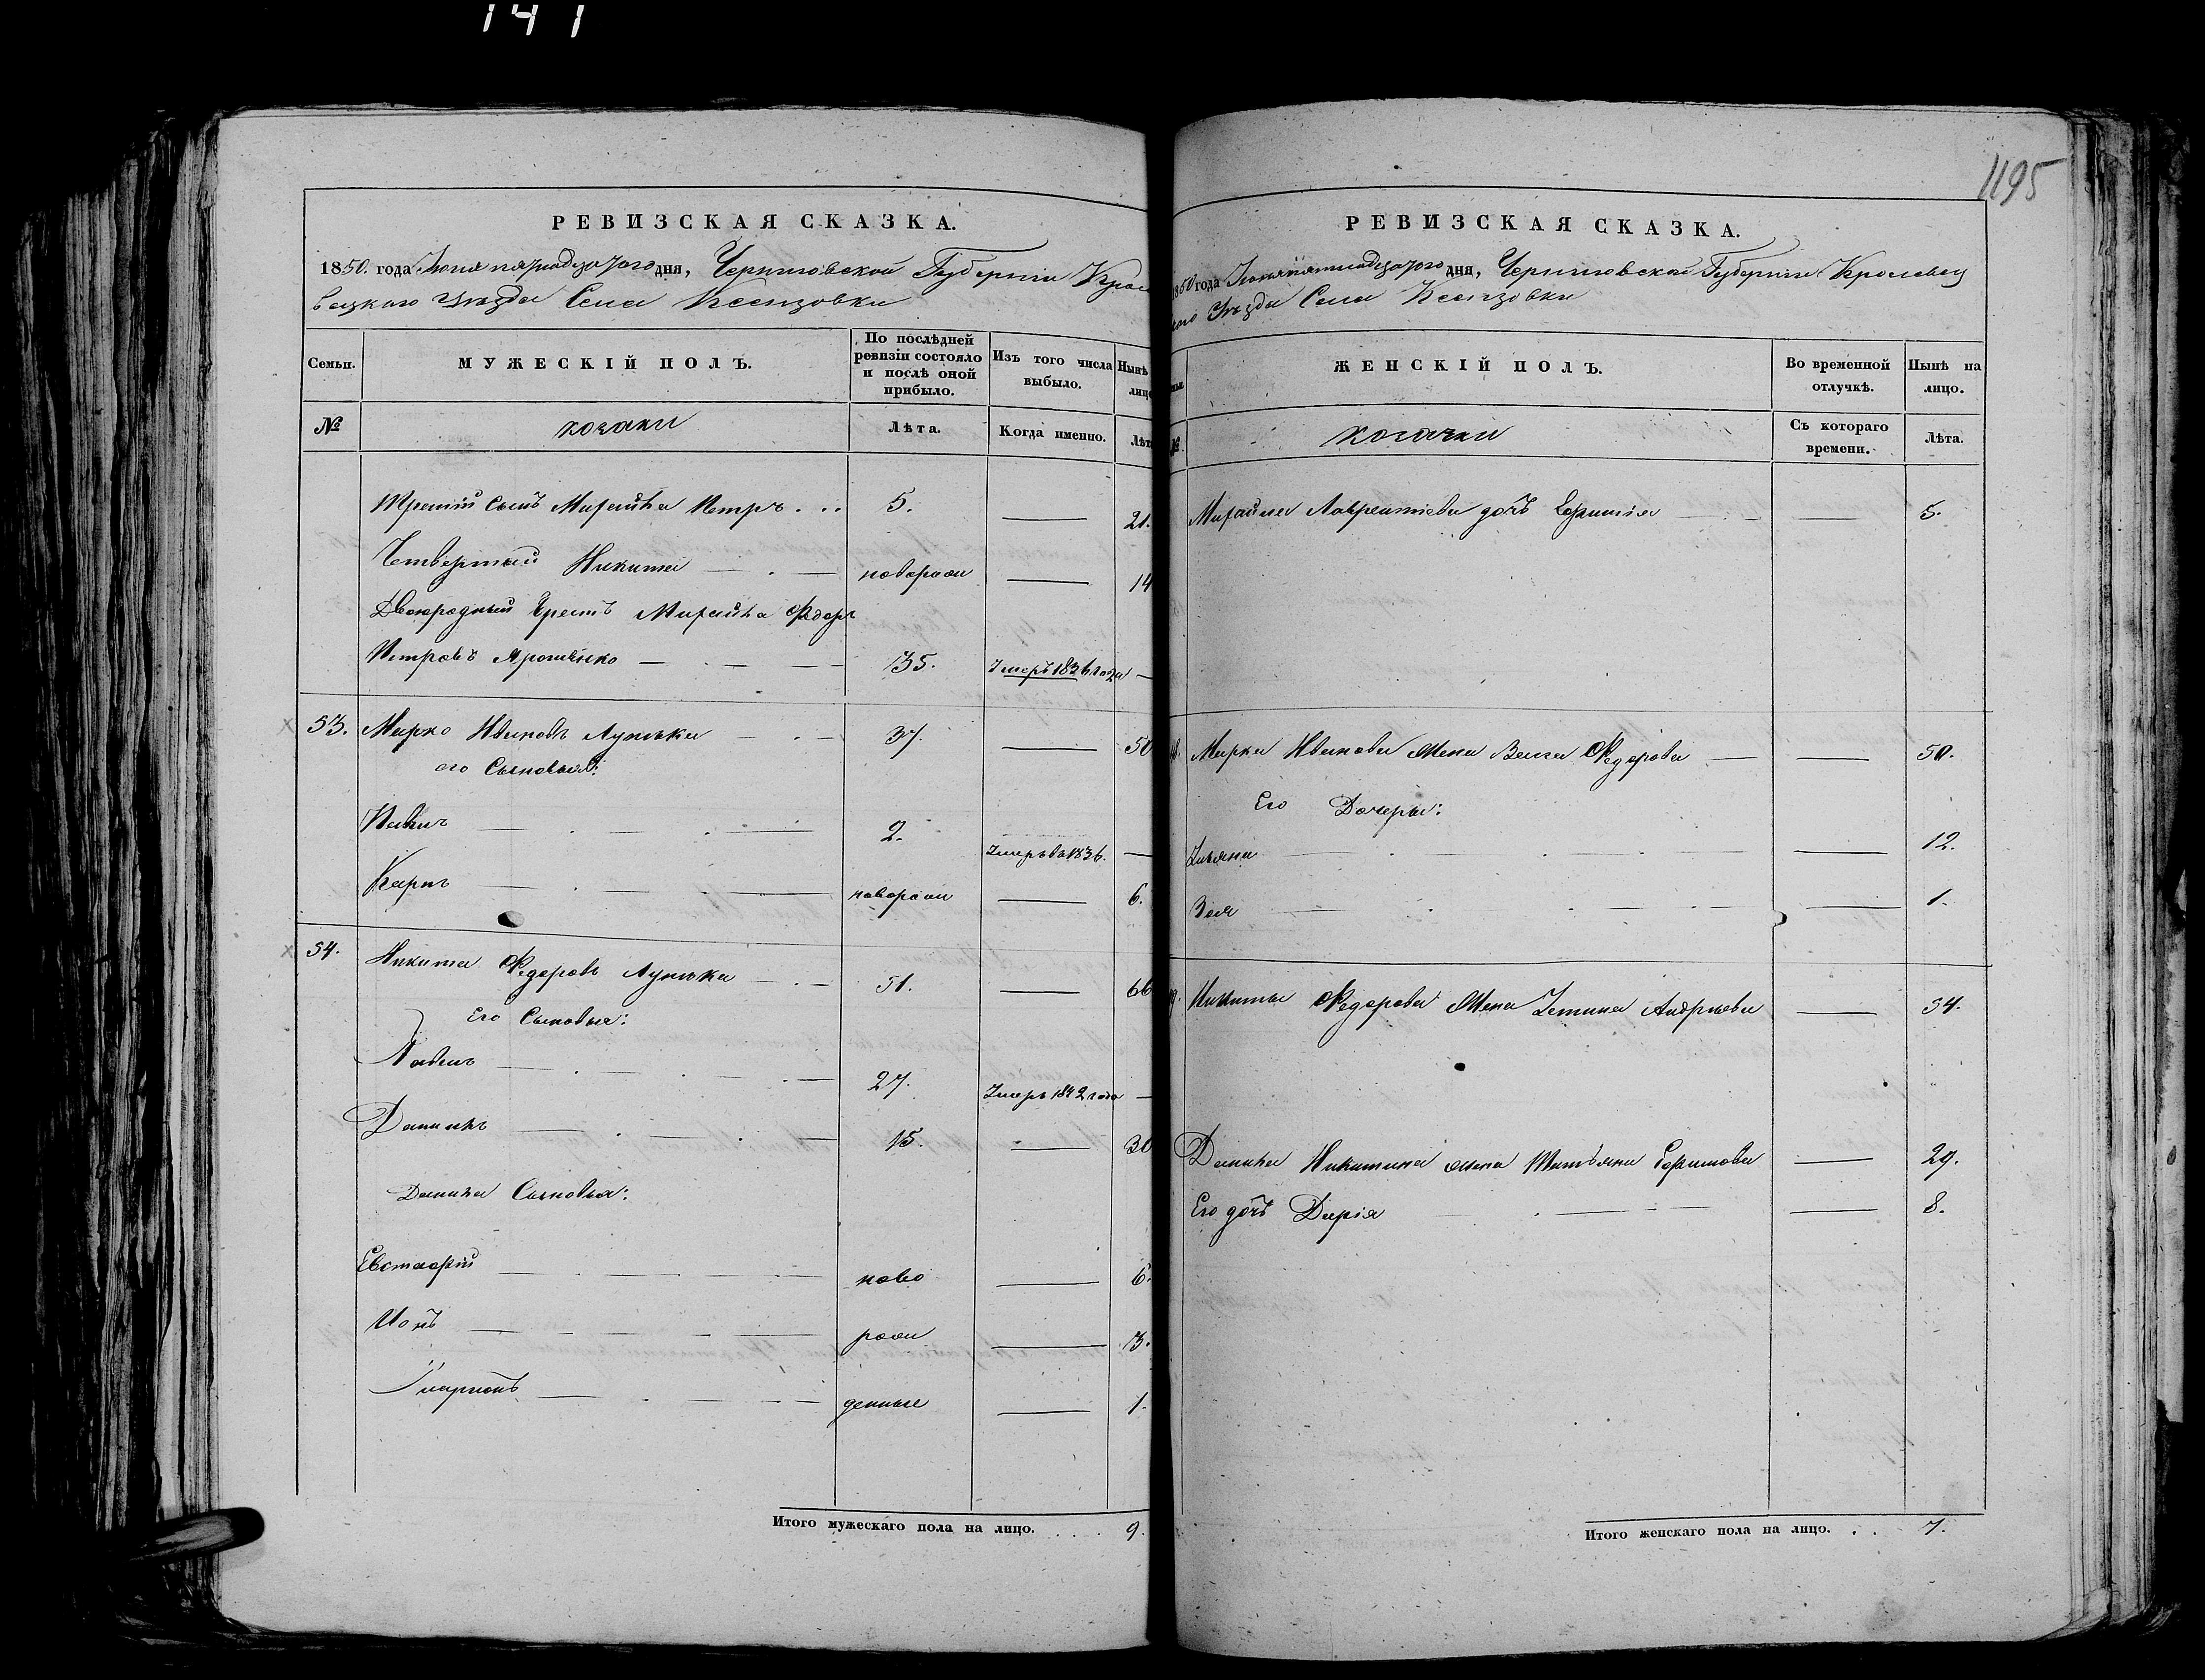 141
1195
РЕВИЗСКАЯ СКАЗКА.
1850. года Іюня пятнадцатого дня, Черниговской Губерніи Кроле
вецкаго Уѣзда Села Ксензовки
Семьи.
МУЖЕСКІЙ ПОЛЪ.
По послѣдней ревизіи состояло и послѣ оной прибыло.
Изъ того числа выбыло.
Нынѣ лицо
№
козаки
Лѣта.
Когда именно.
Лѣт
Третій сынъ Михайла Петръ . . . 5. 21.
Четвертый Никита новорож 14
Двоюродный братъ Михайла Федоръ
Петровъ Ярошенко 35. Умеръ 1836 года
53. Марко Ивановъ Лупѣка 37. 50
его Сыновья:
Иванъ 2. Умеръ въ 1836.
Карпъ новорож 6.
54. Никита Федоровъ Лупѣка 51. 66
Его Сыновья:
Павелъ 27. Умеръ 1842 года
Данило 15. 30
Данила Сыновья:
Евстафій ново 6.
Іонъ рож 3.
Иларіонъ денные 1.
Итого мужескаго пола на лицо. . . . 9.
РЕВИЗСКАЯ СКАЗКА.
1850 года Іюня пятнадцатого дня, Черниговской Губерніи Кролевец
каго Уѣзда Села Ксензовки
ЖЕНСКІЙ ПОЛЪ.
Во временной отлучкѣ.
Нынѣ на лицо.
№
козачки
Съ котораго времени.
Лѣта.
Михайла Лаврентіева дочь Ефимія 5.
Марка Иванова Жена Васса Федорова 50.
Его Дочери:
Ульяна 12.
1.
Никиты Федорова Жена Устина Андрѣева 54.
Данила Никитина жена Татьяна Ефимова 29.
Его дочь Дарія 8.
Итого женскаго пола на лицо. . . 7.